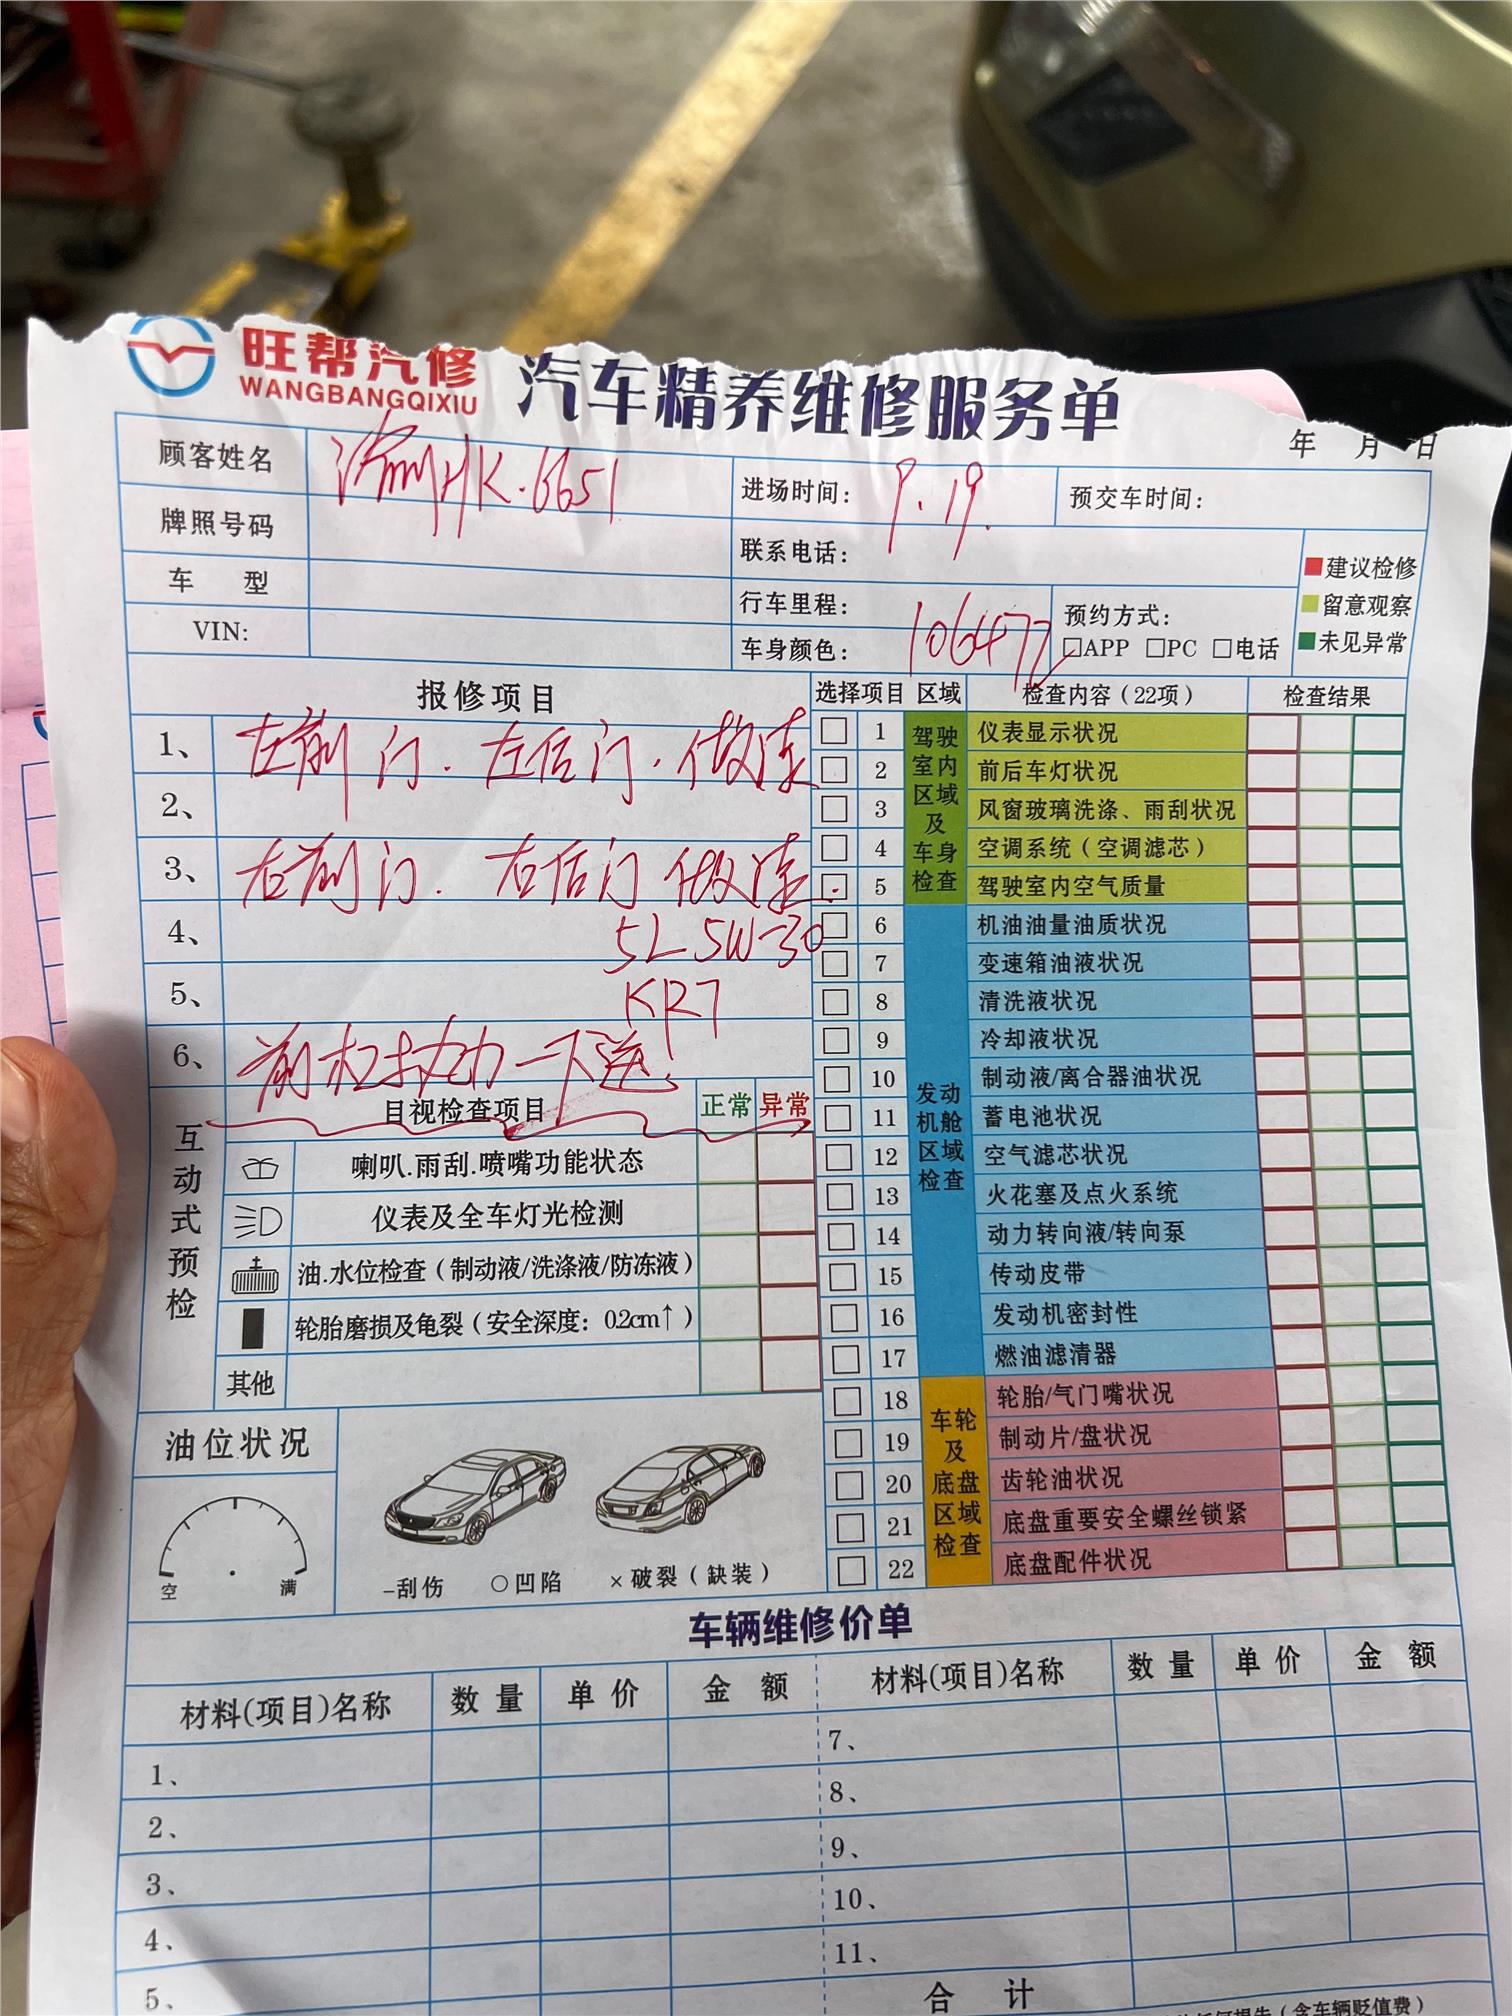 旺帮汽修
WANGBANGQIXIU
汽车精养维修服务单
年 月 日
顾客姓名
HK.6651
进场时间: 9.19.
预交车时间:
牌照号码
联系电话:
建议检修
留意观察
未见异常
车 型
行车里程: 106477
预约方式:
□APP □PC □电话
VIN:
车身颜色:
报修项目
选择项目 区域 检查内容(22项) 检查结果
1、 左前门. 左后门. 做漆
2、
3、 右前门. 右后门 做漆.
4、 5L 5W-30
5、 KR7
6、 前杠拔动一下送
驾驶室内区域及车身检查
1 仪表显示状况
2 前后车灯状况
3 风窗玻璃洗涤、雨刮状况
4 空调系统(空调滤芯)
5 驾驶室内空气质量
发动机舱区域检查
6 机油油量油质状况
7 变速箱油液状况
8 清洗液状况
9 冷却液状况
10 制动液/离合器油状况
11 蓄电池状况
12 空气滤芯状况
13 火花塞及点火系统
14 动力转向液/转向泵
15 传动皮带
16 发动机密封性
17 燃油滤清器
车轮及底盘区域检查
18 轮胎/气门嘴状况
19 制动片/盘状况
20 齿轮油状况
21 底盘重要安全螺丝锁紧
22 底盘配件状况
互动式预检
目视检查项目 正常 异常
喇叭.雨刮.喷嘴功能状态
仪表及全车灯光检测
油.水位检查(制动液/洗涤液/防冻液)
轮胎磨损及龟裂(安全深度: 0.2cm↑)
其他
油位状况
空 满
-刮伤 ○凹陷 ×破裂(缺装)
车辆维修价单
材料(项目)名称 数量 单价 金额 材料(项目)名称 数量 单价 金额
1、
2、
3、
4、
5、
7、
8、
9、
10、
11、
合 计
(含车辆贬值费)